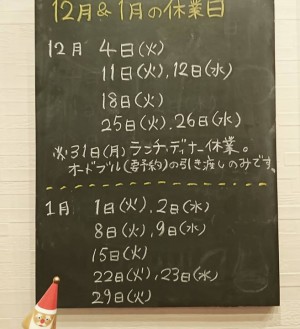 12月&1月の休業日
12月 4日(火)
11日(火),12日(水)
18日(火)
25日(火),26日(水)
※31日(月)ランチ・ディナー休業。
オードブル(要予約)の引き渡しのみです。
1月 1日(火),2日(水)
8日(火),9日(水)
15日(火)
22日(火),23日(水)
29日(火)